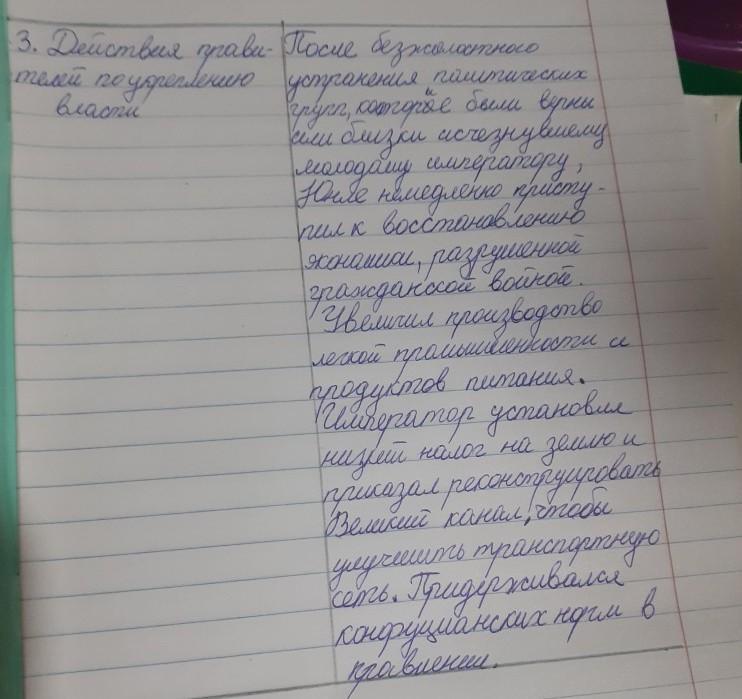 3. Действия прави-
телей по укреплению
власти
После безжалостного
устранения политических
групп, которые были верны
или близки исчезнувшему
молодому императору,
Юнле немедленно присту-
пил к восстановлению
экономии, разрушенной
гражданской войной.
Увеличил производство
легкой промышленности и
продуктов питания.
Император установил
низкий налог на землю и
приказал реконструировать
Великий канал, чтобы
улучшить транспортную
сеть. Придерживался
конфуцианских норм в
правлении.